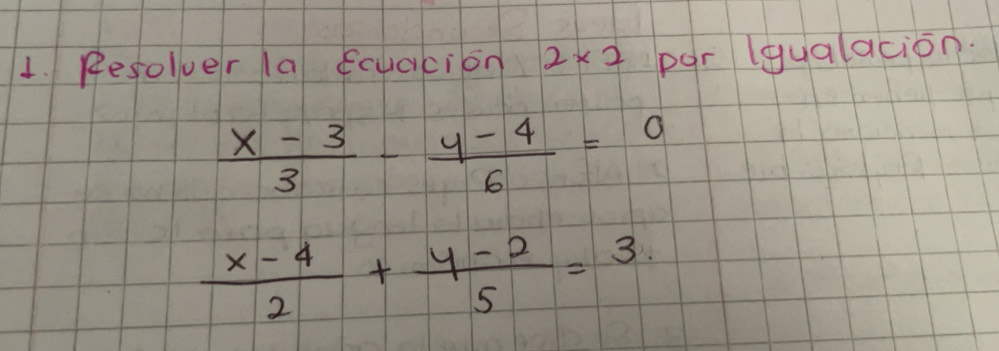 1. Resolver la Ecuación 2x2 por Igualación.
x - 3 / 3 - y - 4 / 6 = 0
x - 4 / 2 + y - 2 / 5 = 3.